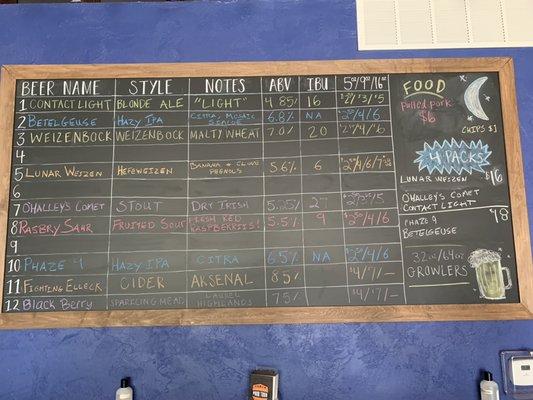 BEER NAME STYLE NOTES ABV IBU 5oz/9oz/16oz
1 CONTACT LIGHT BLONDE ALE "LIGHT" 4.85% 16
2 BETELGEUSE HAZY IPA CITRA, MOSAIC 6.8% NA
3 WEIZENBOCK WEIZENBOCK MALTY WHEAT 7.0% 20
4
5 LUNAR WEIZEN HEFEWEIZEN BANANA & CLOVE PHENOLS 5.6% 6
7 O'HALLEY'S COMET STOUT DRY IRISH 5.25% 27
8 RASBRY SAAR FRUITED SOUR FRESH RED RASPBERRIES! 5.5% 9
9
10 PHAZE 9 HAZY IPA CITRA 6.5% NA
11 FIGHTING ELLECK CIDER ARSENAL 8.5%
12 BLACK BERRY SPARKLING MEAD LAUREL HIGHLANDS 7.5%
FOOD
Pulled pork
$6
CHIPS $1
4 PACKS
LUNAR WEIZEN $16
O'HALLEY'S COMET
CONTACT LIGHT
PHAZE 9
BETELGEUSE
32oz/64oz
GROWLERS